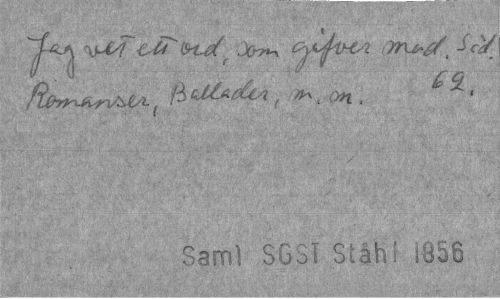 Jag vet ett ord, som gifver mod. Sid.
Romanser, Ballader, m. m. 62.
Saml SGST Ståhl 1856